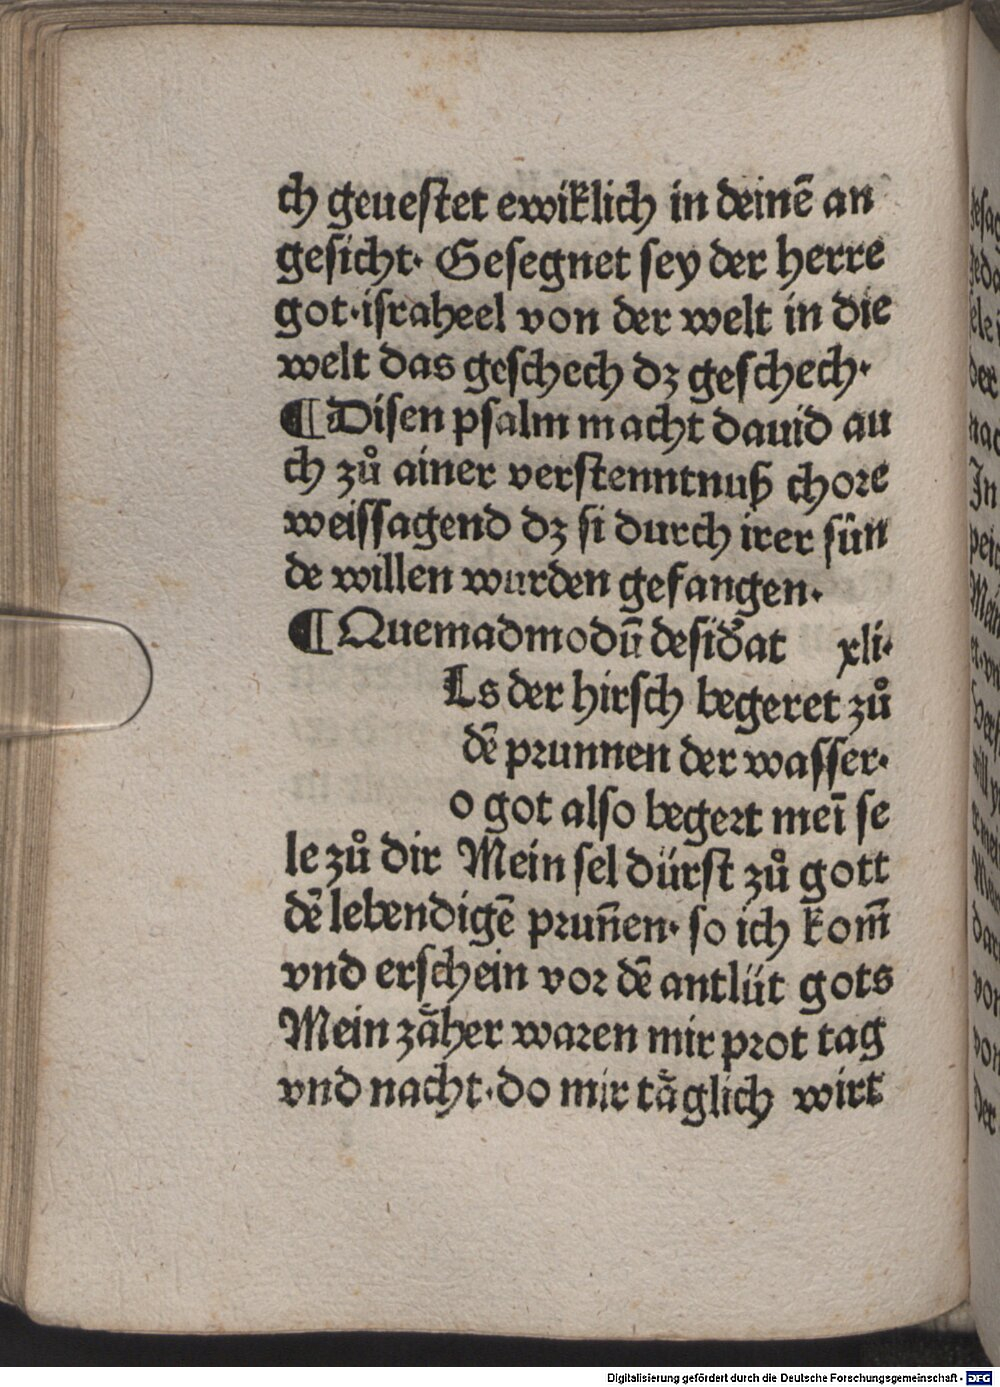 ch geuestet ewiklich in deinē an
gesicht· Gesegnet sey der herre
got·israheel von der welt in die
welt das geschech dz geschech·
¶ Disen psalm macht dauid au
ch zů ainer verstenntnuß chore
weissagend dz si durch irer sün
de willen wurden gefangen·
¶ Quemadmodū desid̄at xli·
Ls der hirsch begeret zů
dē prunnen der wasser·
o got also begert meī se
le zů dir Mein sel dürst zů gott
dē lebendigē prun̄en· so ich kom̄
vnd erschein vor dē antlüt gots
Mein zäher waren mir prot tag
vnd nacht·do mir täglich wirt
Digitalisierung gefördert durch die Deutsche Forschungsgemeinschaft - DFG